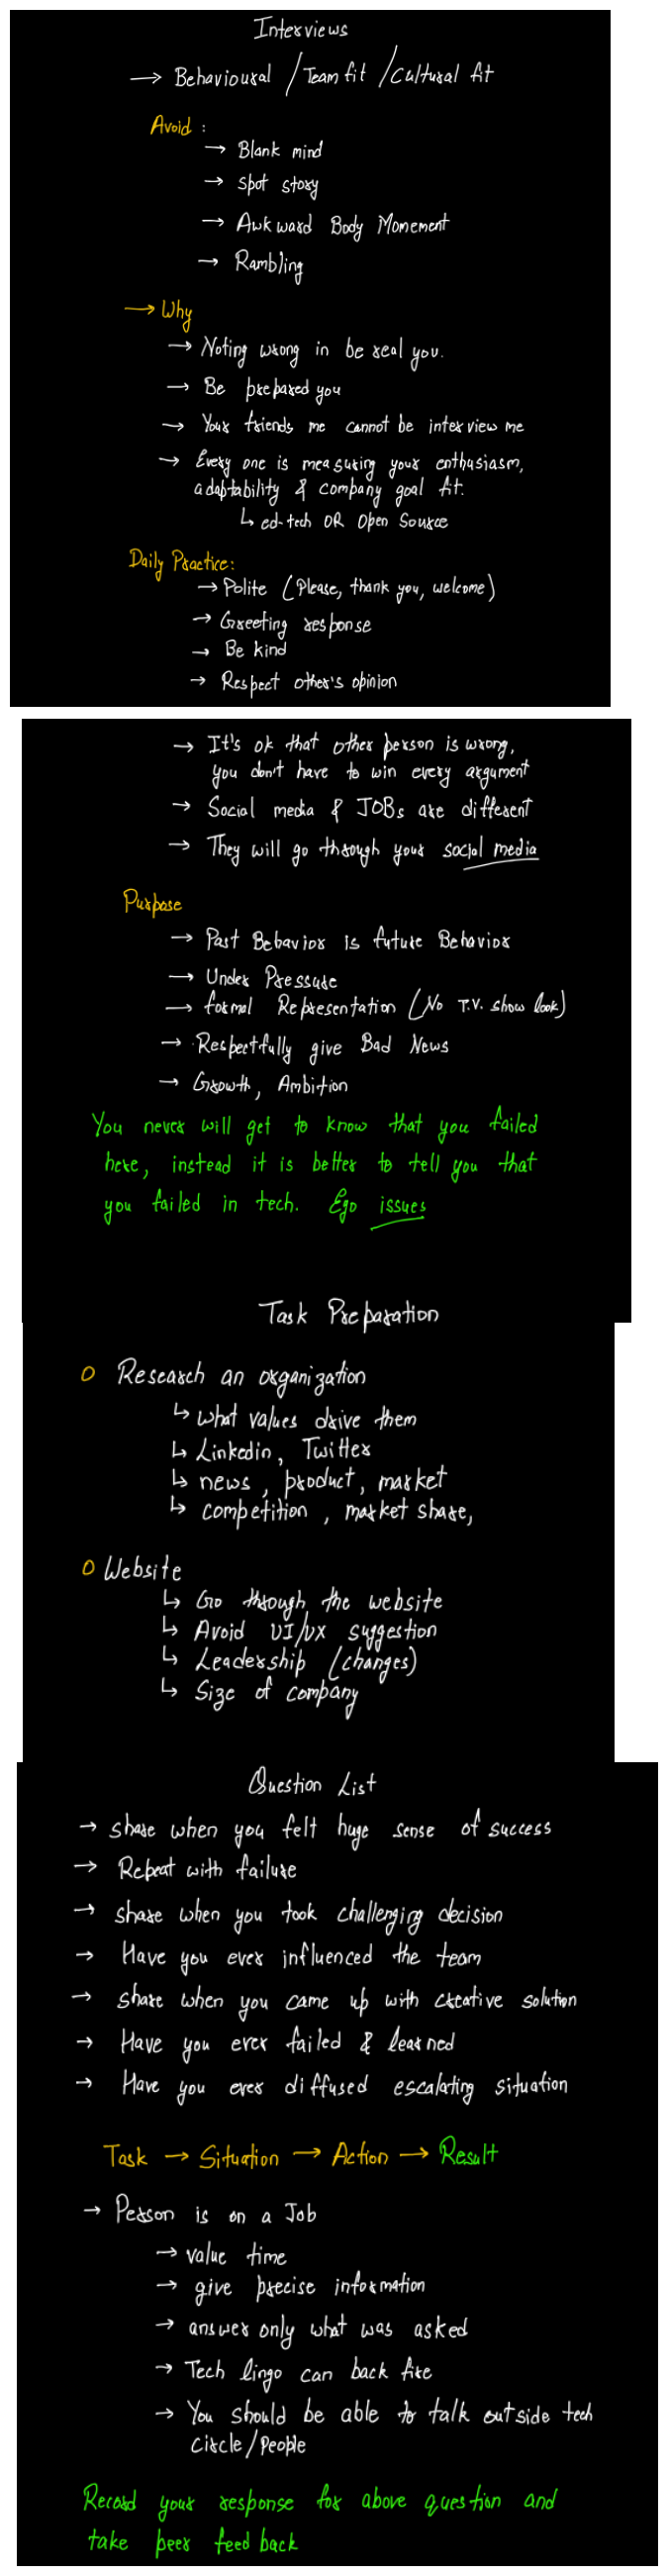 Interviews
→ Behavioural / Team fit / Cultural fit
Avoid :
→ Blank mind
→ spot story
→ Awkward Body Momement
→ Rambling
→ Why
→ Noting wrong in be real you.
→ Be prepared you
→ Your friends me cannot be interview me
→ Every one is measuring your enthusiasm,
adaptability & company goal fit.
↳ ed-tech OR Open Source
Daily Practice:
→ Polite (Please, thank you, welcome)
→ Greeting response
→ Be kind
→ Respect other's opinion
→ It's ok that other person is wrong,
you don't have to win every argument
→ Social media & JOBs are different
→ They will go through your social media
Purpose
→ Past Behavior is future Behavior
→ Under Pressure
→ formal Representation (No T.V. show look)
→ Respectfully give Bad News
→ Growth, Ambition
You never will get to know that you failed
here, instead it is better to tell you that
you failed in tech. Ego issues
Task Preparation
O Research an organization
↳ what values drive them
↳ Linkedin, Twitter
↳ news, product, market
↳ competition, market share,
O Website
↳ Go through the website
↳ Avoid UI/UX suggestion
↳ Leadership (changes)
↳ Size of company
Question List
→ share when you felt huge sense of success
→ Repeat with failure
→ share when you took challenging decision
→ Have you ever influenced the team
→ share when you came up with creative solution
→ Have you ever failed & learned
→ Have you ever diffused escalating situation
Task → Situation → Action → Result
→ Person is on a Job
→ value time
→ give precise information
→ answer only what was asked
→ Tech lingo can back fire
→ You should be able to talk outside tech
circle/People
Record your response for above question and
take peer feed back